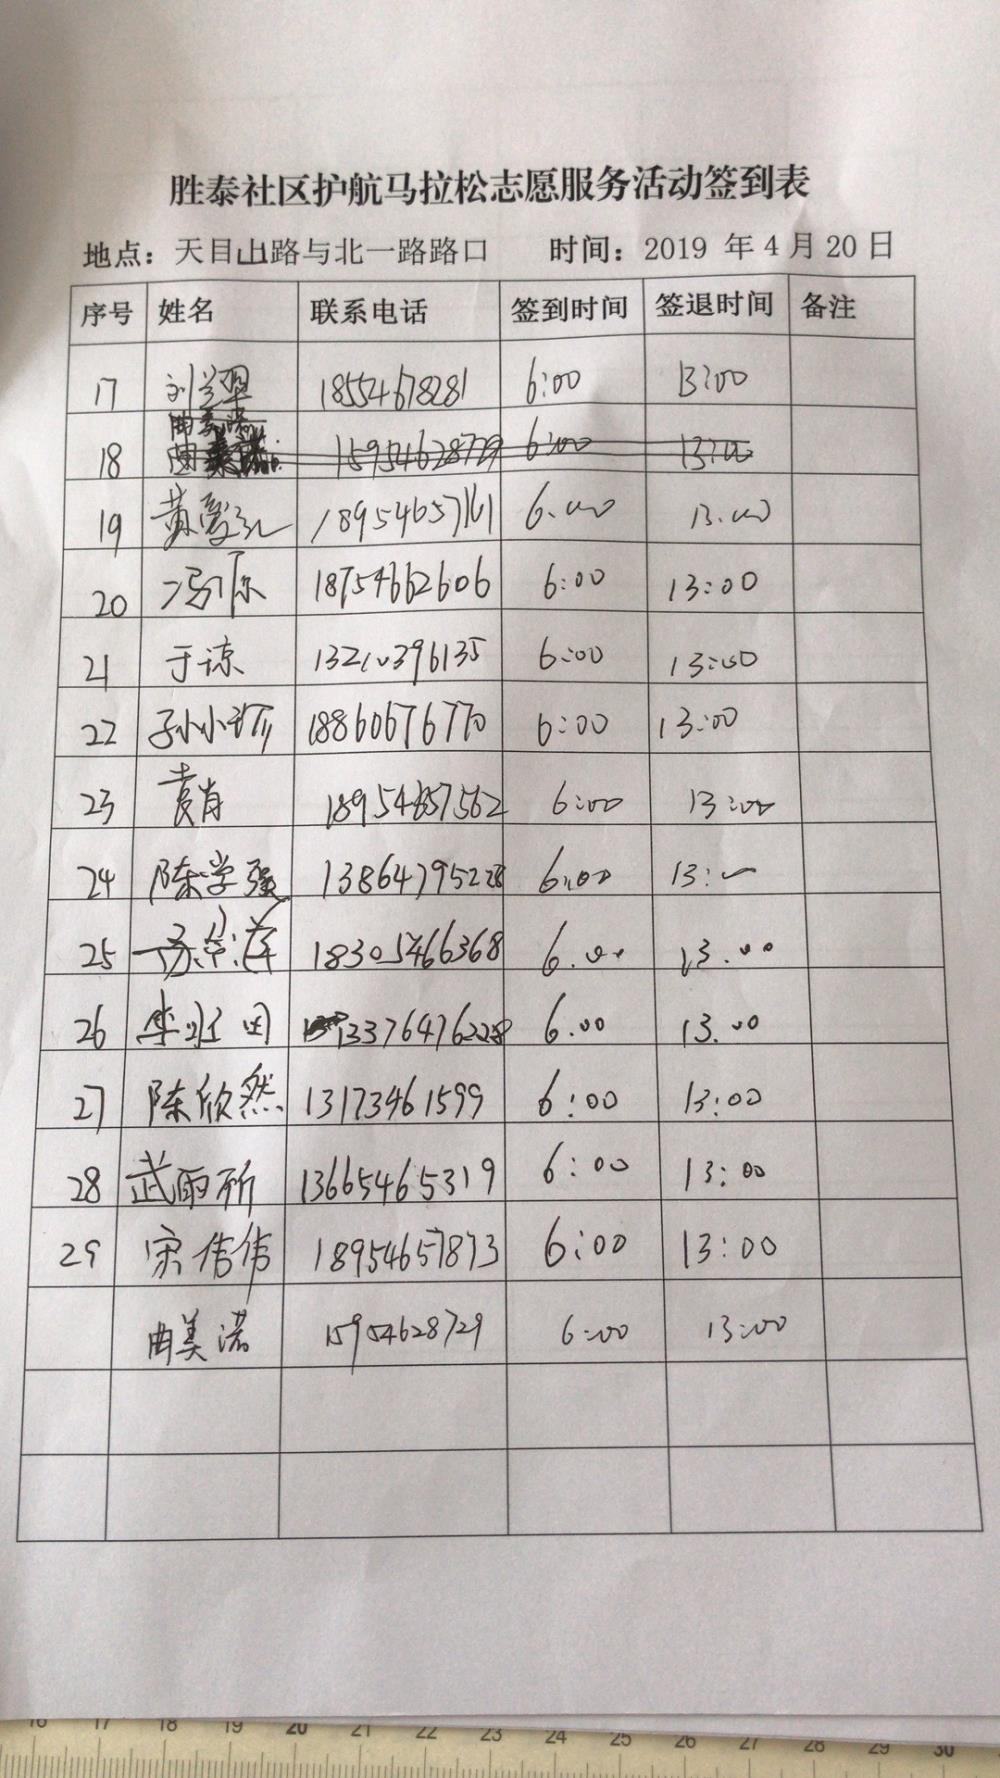 胜泰社区护航马拉松志愿服务活动签到表
地点：天目山路与北一路路口 时间：2019 年 4 月 20 日
序号 姓名 联系电话 签到时间 签退时间 备注
17 刘兰翠 18554678281 6:00 13:00
18 曲美诺 15954628729 6:00 13:00
19 黄爱红 18954657161 6.00 13.00
20 冯琼 18754662606 6:00 13:00
21 于谅 13210396135 6:00 13:00
22 孙小珍 18860676770 6:00 13:00
23 袁肖 18954657562 6:00 13:00
24 陈学强 13864795228 6:00 13:
25 18305466368 6.00 13.00
26 李冰田 13376476228 6.00 13.00
27 陈欣然 13173461599 6:00 13:00
28 武雨祈 13665465319 6:00 13:00
29 宋佳伟 18954657873 6:00 13:00
曲美诺 15954628729 6:00 13:00
16 17 18 19 20 21 22 23 24 25 26 27 28 29 30